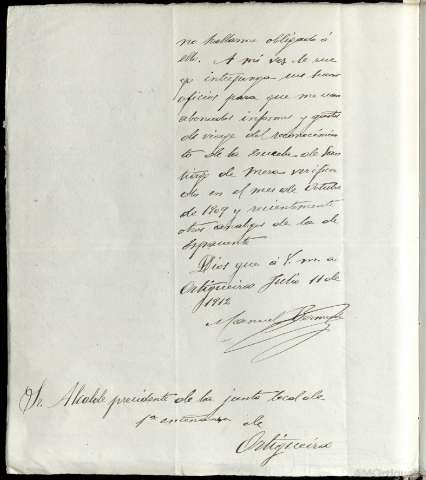 no hallarme obligado á
ello. A mi vez le rue
go interponga sus buenos
oficios para que me sean
abonados informes y gastos
de viaje del reconocimien
to de la Escuela de San
de Mera verifica
do en el mes de Octubre
de 1909 y recientemente
otros análogos de la de
Espasante
Dios gue á V. m. a
Ortigueira Julio 11 de
1912
Manuel
Sr. Alcalde presidente de la junta local de
1ª enseñanza de
Ortigueira